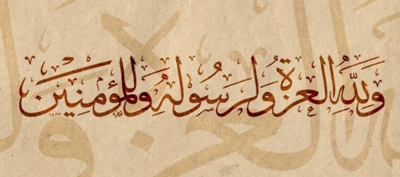 وَلِلَّهِ العِزَّةُ وَلِرَسُولِهِ وَلِلْمُؤْمِنِينَ